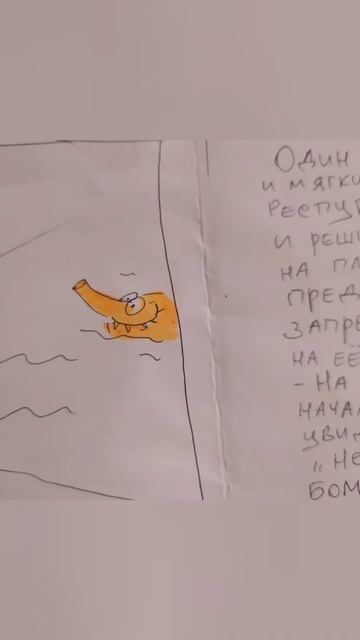 ОДИН
И МЯГКИ
РЕСПУ
И РЕШИ
НА ПЛ
ПРЕД
ЗАПРЕ
НА ЕЁ
- НА
НАЧАЛ
ЦВИ
„НЕ
БОМ